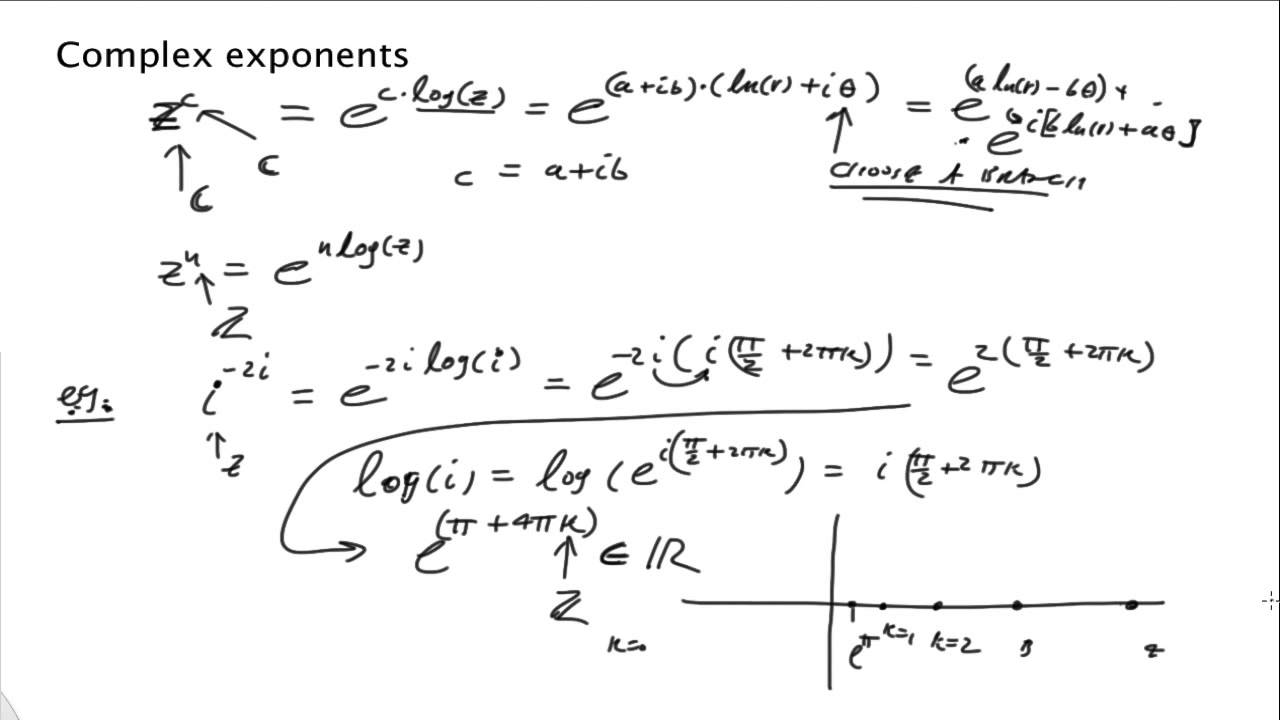 Complex exponents
z^c = e^{c·log(z)} = e^{(a+ib)·(ln(r)+iθ)} = e^{(a ln(r) - bθ)} + · e^{i[b ln(r) + aθ]}
C
C
c = a+ib
CHOOSE A BRANCH
z^n = e^{n log(z)}
Z
eg: i^{-2i} = e^{-2i log(i)} = e^{-2i(i(π/2 + 2πk))} = e^{2(π/2 + 2πk)}
z
log(i) = log(e^{i(π/2 + 2πk)}) = i(π/2 + 2πk)
e^{(π + 4πk)} ∈ IR
Z
k=0
e^π k=1 k=2 3